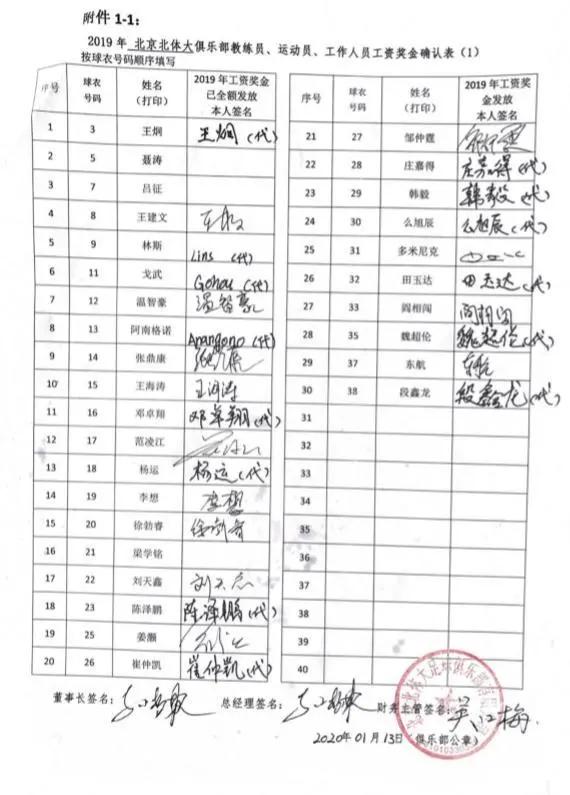 附件 1-1:
2019 年 北京北体大俱乐部教练员、运动员、工作人员工资奖金确认表（1）
按球衣号码顺序填写
序号 球衣号码 姓名（打印） 2019 年工资奖金已全额发放本人签名
1 3 王炯 王炯（代）
2 5 聂涛
3 7 吕征
4 8 王建文
5 9 林斯 Lins （代）
6 11 戈武 Gohou （代）
7 12 温智豪 温智豪
8 13 阿南格诺 Anangono（代）
9 14 张鼎康
10 15 王海涛 王海涛
11 16 邓卓翔 邓卓翔（代）
12 17 范凌江
13 18 杨运 杨运（代）
14 19 李想 李想
15 20 徐勃睿
16 21 梁学铭
17 22 刘天鑫
18 23 陈泽鹏 陈泽鹏（代）
19 25 姜灏
20 26 崔仲凯 崔仲凯（代）
序号 球衣号码 姓名（打印） 2019 年工资奖金发放本人签名
21 27 邹仲霆
22 28 庄嘉得 （代）
23 29 韩毅 韩毅（代）
24 30 么旭辰 么旭辰（代）
25 31 多米尼克
26 32 田玉达 田玉达（代）
27 33 阎相闯
28 35 魏超伦 魏超伦（代）
29 37 东航 东航
30 38 段鑫龙 段鑫龙（代）
31
32
33
34
35
36
37
38
39
40
董事长签名： 总经理签名： 财务主管签名：
2020年 01 月 13日（俱乐部公章）